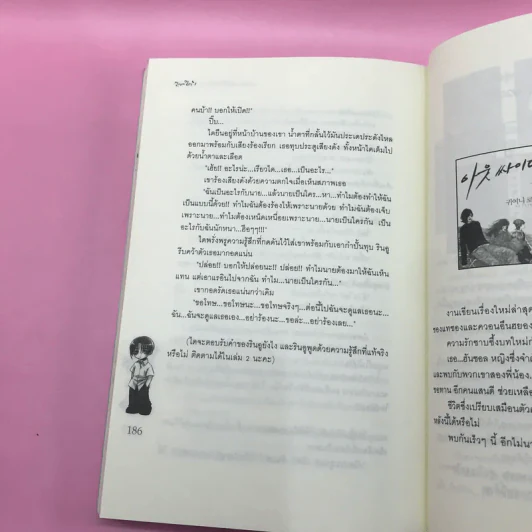 คนบ้า!! บอกให้เปิด!!"
ปึ้ง...
ใดยืนอยู่ที่หน้าบ้านของเขา น้ำตาที่กลั้นไว้มันประเดประดังไหล
ออกมาพร้อมกับเสียงร้องเรียก เธอทุบประตูเสียงดัง ทั้งหน้าใดเต็มไป
ด้วยน้ำตาและเลือด
"เฮ้ย!! อะไรน่ะ...เรียวใด...เธอ...เป็นอะไร..."
เขาร้องเสียงดังด้วยความตกใจเมื่อเห็นสภาพเธอ
"ฉันเป็นอะไรกับนาย...แล้วนายเป็นใครหา... ทำไมต้องทำให้ฉัน
เป็นแบบนี้ด้วย!! ทำไมฉันต้องร้องไห้เพราะนายด้วย ทำไมฉันต้องเจ็บ
เพราะนาย...ทำไมต้องเหน็ดเหนื่อยเพราะนาย...นายเป็นใครกัน เป็น
อะไรกับฉันนักหนา...ฮือๆๆ!!!"
ใดพรั่งพรูความรู้สึกที่กดดันไว้ใส่เขาพร้อมกับเอากำปั้นทุบ รินอู
รีบคว้าตัวเธอมากอดแน่น
"ปล่อย!! บอกให้ปล่อยนะ!! ปล่อย!! ทำไมนายต้องมาให้ฉันเห็น
แทน แต่เอาแรอินไปจากฉัน ทำไม...นายเป็นใครกัน..."
เขากอดรัดเธอแน่นกว่าเดิม
"ขอโทษ...ขอโทษนะ...ขอโทษจริงๆ...ต่อนี้ไปฉันจะดูแลเธอนะ...
ฉัน...ฉันจะดูแลเธอเอง...อย่าร้องนะ...ขอล่ะ...อย่าร้องเลย..."
(ใดจะตอบรับคำของรินอูยังไง และรินอูพูดด้วยความรู้สึกที่แท้จริง
หรือไม่ ติดตามได้ในเล่ม 2 นะคะ)
186
아웃싸이더
งานเขียนเรื่องใหม่ล่าสุด
ของแทซองและควอนอึนฮยอง
ความรักซาบซึ้งบทใหม่
เธอ...ฮันซอล หญิงซึ่ง
และพบกับพวกเขาสองพี่น้อง
อีกคนแสนดี ช่วยเหลือ
ชีวิตซึ่งเปรียบเสมือนตัว
หลังนี้ได้หรือไม่
พบกันเร็วๆ นี้